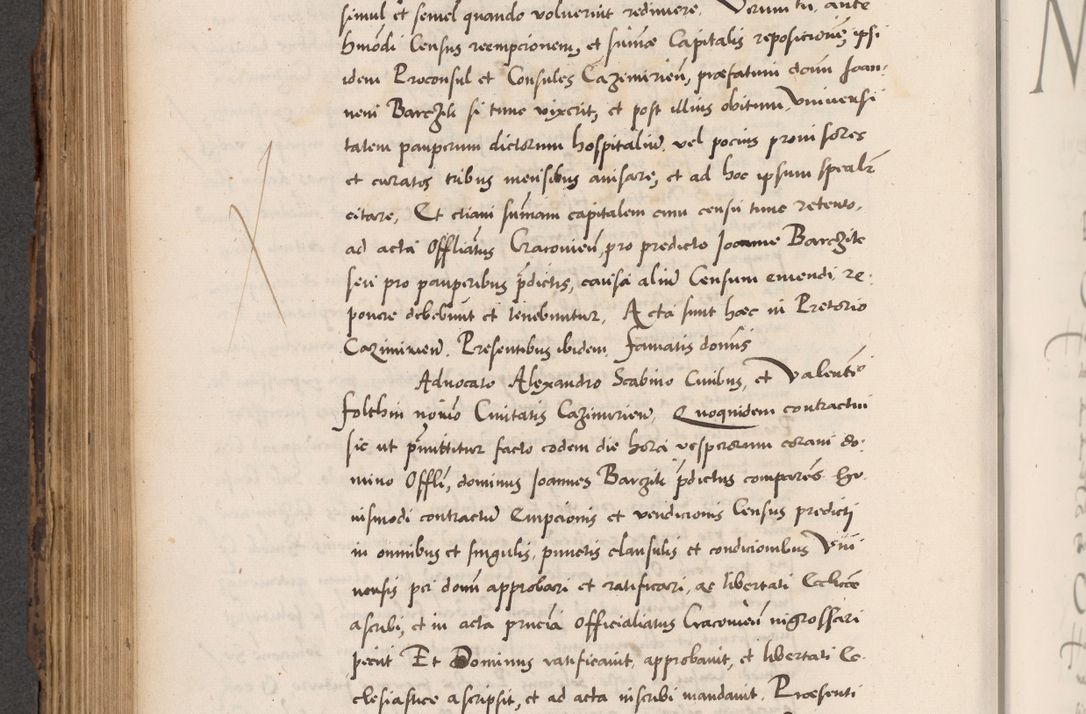 simul et semel quando voluerint redimere. Verum tn̄. ante
hmōdi Census reempcionem, et sum̄æ Capitalis reposicionē, ipsi
idem Proconsul et Consules Cazimirień, præfatum dom̄ Joan-
nem Barczik si tunc vixerit, et post illius obitum, Vniuersi
tatem pauperum dictorum hospitaliū. vel pocius prouisores
et curatos tribus mensibus auisare, et ad hoc ipsum spealr̄
citare, Et etiam sum̄am capitalem cum censu tunc retento,
ad acta Offliatus Cracouień, pro predicto Joanne Barczik
seu pro pauperibus p̄dictis, causa aliū Censum emendi, re-
ponere debebunt et tenebuntur, Acta sunt hæc in Pretorio
Cazimirień. Presentibus ibidem, famatis dom̄is
Aduocato Alexandro Scabino Ciuibus, et Valentō
folthin notrio Ciuitatis Cazimirień, Quoquidem contractui
sic ut p̄mittitur facto eodem die hora vesperorum coram do-
mino Offli, dominus Joannes Barczik p̄dictus comparens hu-
iusmodi contractū Empcionis et vendicionis Census predicti
in omnibus et singulis, punctis clausulis et condicionibus Vni
uersis per dom̄ approbari et ratificari, ac libertati Ecclicæ
ascribi, et in acta pncia Officialiatus Cracouień ingrossari
peciit Et Dominus ratificauit, approbauit, et libertati Ec-
clesiasticæ ascripsit, et ad acta inscribi mandauit. Præsenti